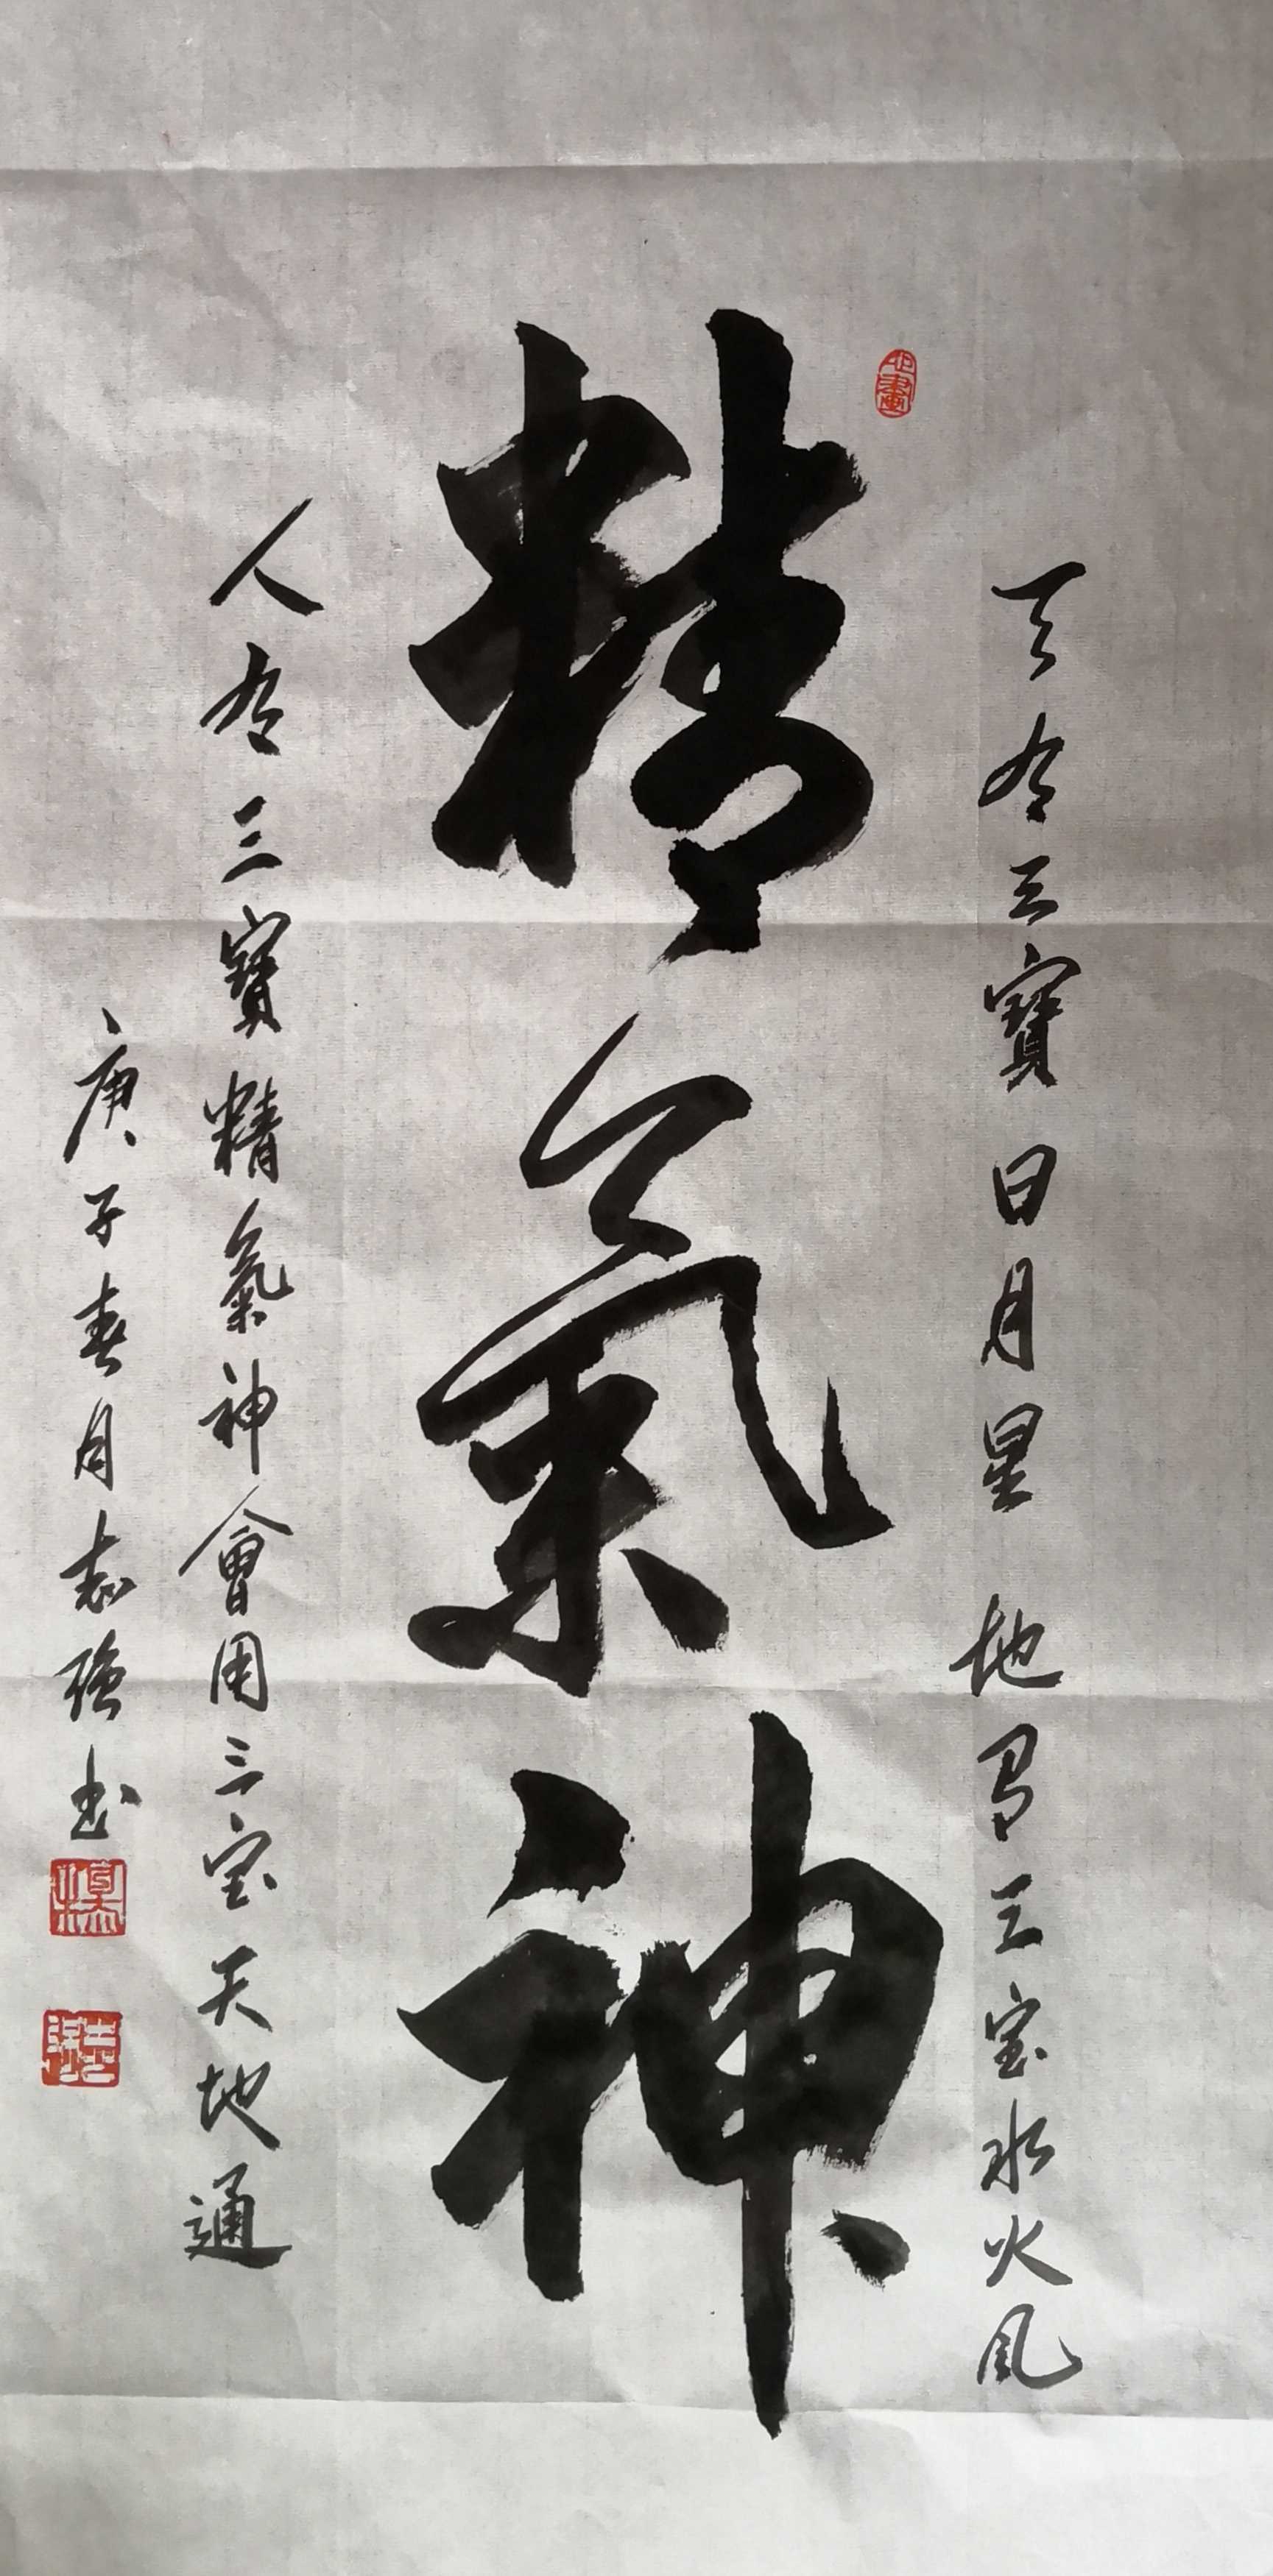 天有三寶日月星 地有三宝水火風
精氣神
人有三寳精氣神會用三宝天地通
庚子春月志強书